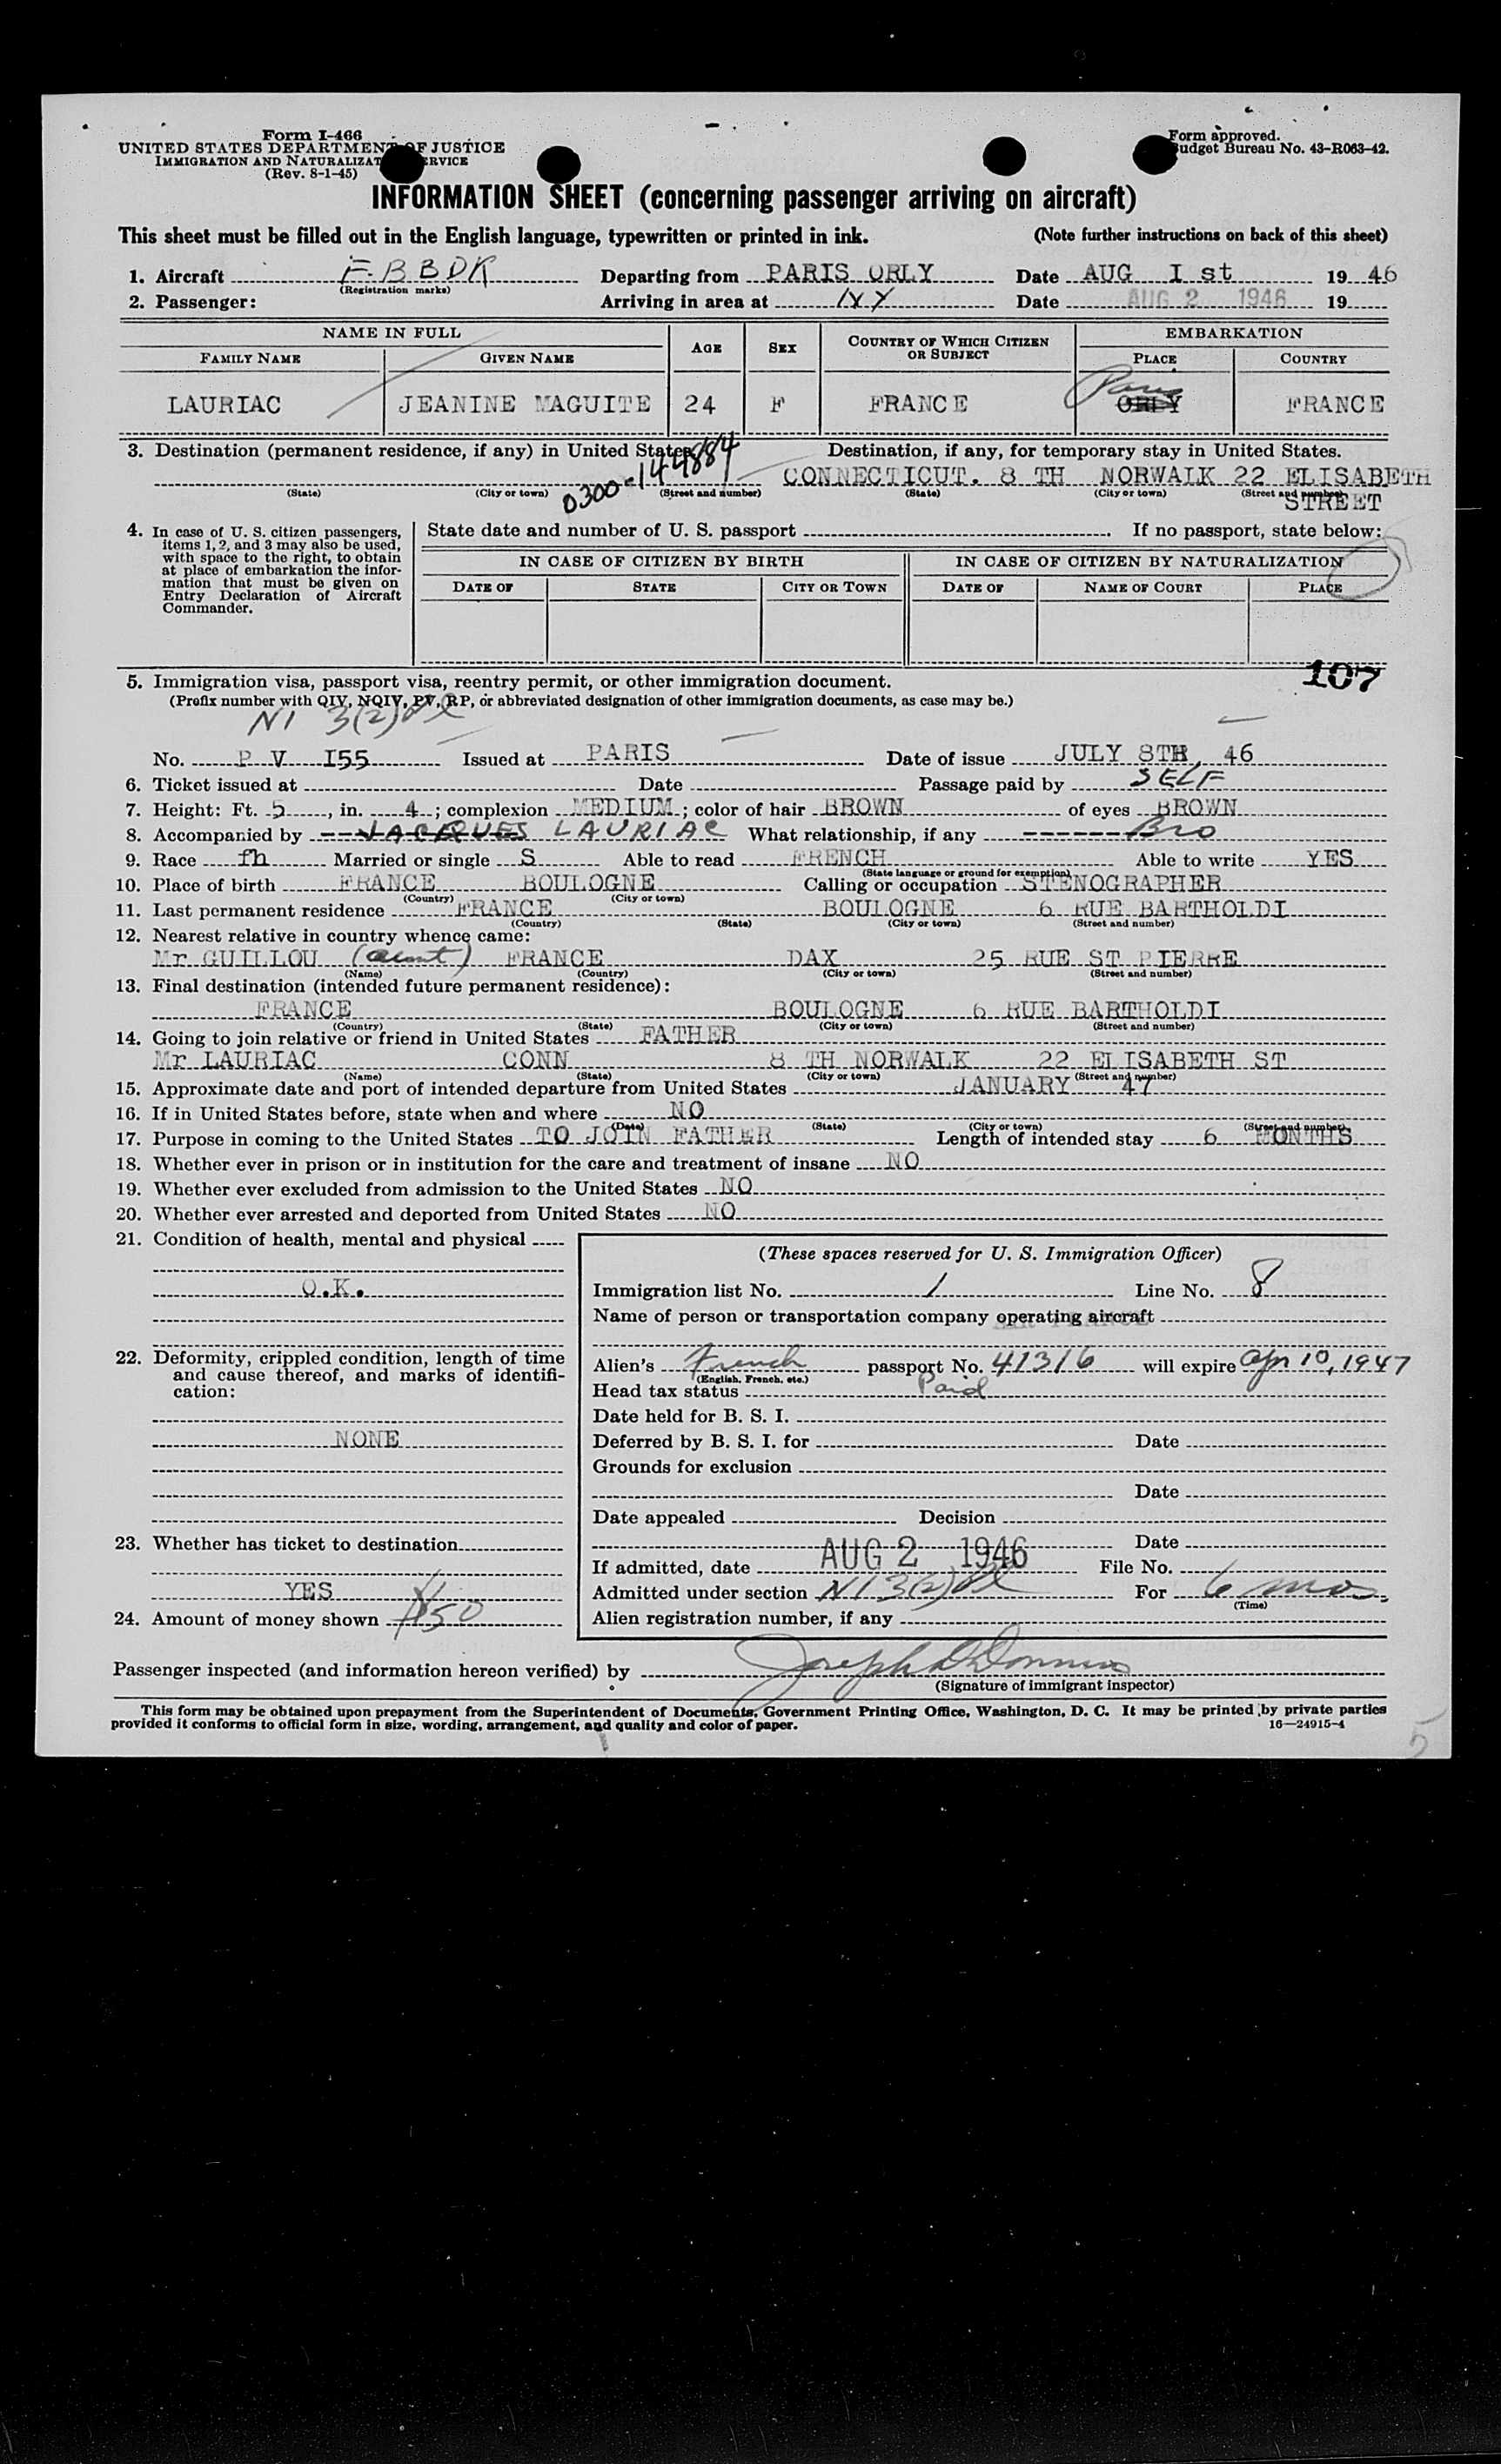 Form I-466
UNITED STATES DEPARTMENT OF JUSTICE
IMMIGRATION AND NATURALIZAT RVICE
(Rev. 8-1-45)
Form approved.
udget Bureau No. 43-R063-42.
INFORMATION SHEET (concerning passenger arriving on aircraft)
This sheet must be filled out in the English language, typewritten or printed in ink. (Note further instructions on back of this sheet)
1. Aircraft F.BBDK Departing from PARIS ORLY Date AUG I st 19 46
(Registration marks)
2. Passenger: Arriving in area at Date AUG 2 1946 19
NAME IN FULL AGE SEX COUNTRY OF WHICH CITIZEN OR SUBJECT EMBARKATION
FAMILY NAME GIVEN NAME PLACE COUNTRY
Paris
LAURIAC JEANINE MAGUITE 24 F FRANCE ORLY FRANCE
3. Destination (permanent residence, if any) in United States Destination, if any, for temporary stay in United States.
0300-144884
CONNECTICUT. 8 TH NORWALK 22 ELISABETH
(State) (City or town) (Street and number) (State) (City or town) (Street and number)
STREET
4. In case of U. S. citizen passengers,
items 1, 2, and 3 may also be used,
with space to the right, to obtain
at place of embarkation the infor-
mation that must be given on
Entry Declaration of Aircraft
Commander.
State date and number of U. S. passport If no passport, state below:
IN CASE OF CITIZEN BY BIRTH IN CASE OF CITIZEN BY NATURALIZATION
DATE OF STATE CITY OR TOWN DATE OF NAME OF COURT PLACE
107
5. Immigration visa, passport visa, reentry permit, or other immigration document.
(Prefix number with QIV, NQIV, PV, RP, or abbreviated designation of other immigration documents, as case may be.)
NI 3(2)
No. P V I55 Issued at PARIS Date of issue JULY 8TH, 46
6. Ticket issued at Date Passage paid by SELF
7. Height: Ft. 5, in. 4; complexion MEDIUM; color of hair BROWN of eyes BROWN
8. Accompanied by JACQUES LAURIAC What relationship, if any Bro
9. Race fh Married or single S Able to read FRENCH Able to write YES
(State language or ground for exemption)
10. Place of birth FRANCE BOULOGNE Calling or occupation STENOGRAPHER
(Country) (City or town)
11. Last permanent residence FRANCE BOULOGNE 6 RUE BARTHOLDI
(Country) (State) (City or town) (Street and number)
12. Nearest relative in country whence came:
Mr GUILLOU (Aunt) FRANCE DAX 25 RUE ST PIERRE
(Name) (Country) (City or town) (Street and number)
13. Final destination (intended future permanent residence):
FRANCE BOULOGNE 6 RUE BARTHOLDI
(Country) (State) (City or town) (Street and number)
14. Going to join relative or friend in United States FATHER
Mr LAURIAC CONN 8 TH NORWALK 22 ELISABETH ST
(Name) (State) (City or town) (Street and number)
15. Approximate date and port of intended departure from United States JANUARY 47
16. If in United States before, state when and where NO
(Date) (State) (City or town) (Street and number)
17. Purpose in coming to the United States TO JOIN FATHER Length of intended stay 6 MONTHS
18. Whether ever in prison or in institution for the care and treatment of insane NO
19. Whether ever excluded from admission to the United States NO
20. Whether ever arrested and deported from United States NO
21. Condition of health, mental and physical
O.K.
22. Deformity, crippled condition, length of time
and cause thereof, and marks of identifi-
cation:
NONE
23. Whether has ticket to destination
YES
24. Amount of money shown $150
(These spaces reserved for U. S. Immigration Officer)
Immigration list No. 1 Line No. 8
Name of person or transportation company operating aircraft
Alien's French passport No. 41316 will expire Apr 10, 1947
(English, French, etc.)
Head tax status Paid
Date held for B. S. I.
Deferred by B. S. I. for Date
Grounds for exclusion
Date
Date appealed Decision
Date
If admitted, date AUG 2 1946 File No.
Admitted under section NI 3(2) For 6 mos.
(Time)
Alien registration number, if any
Passenger inspected (and information hereon verified) by
(Signature of immigrant inspector)
This form may be obtained upon prepayment from the Superintendent of Documents, Government Printing Office, Washington, D. C. It may be printed by private parties
provided it conforms to official form in size, wording, arrangement, and quality and color of paper.
16—24915-4
5